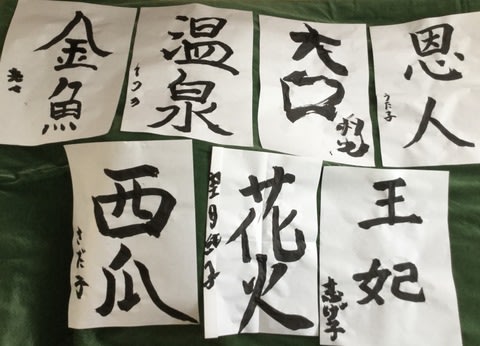 金魚
温泉
大口
恩人
うた子
西瓜
さだ子
花火
王妃